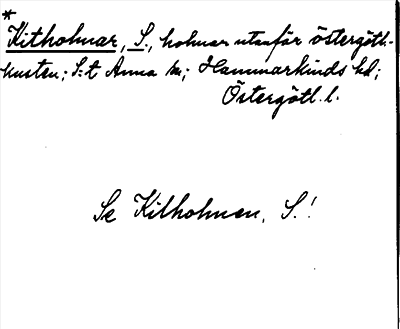 *
Kitholmar, S., holmar utanför östergötl.-
kusten; S:t Anna sn; Hammarkinds hd;
Östergötl. l.
Se Kilholmen, S.!